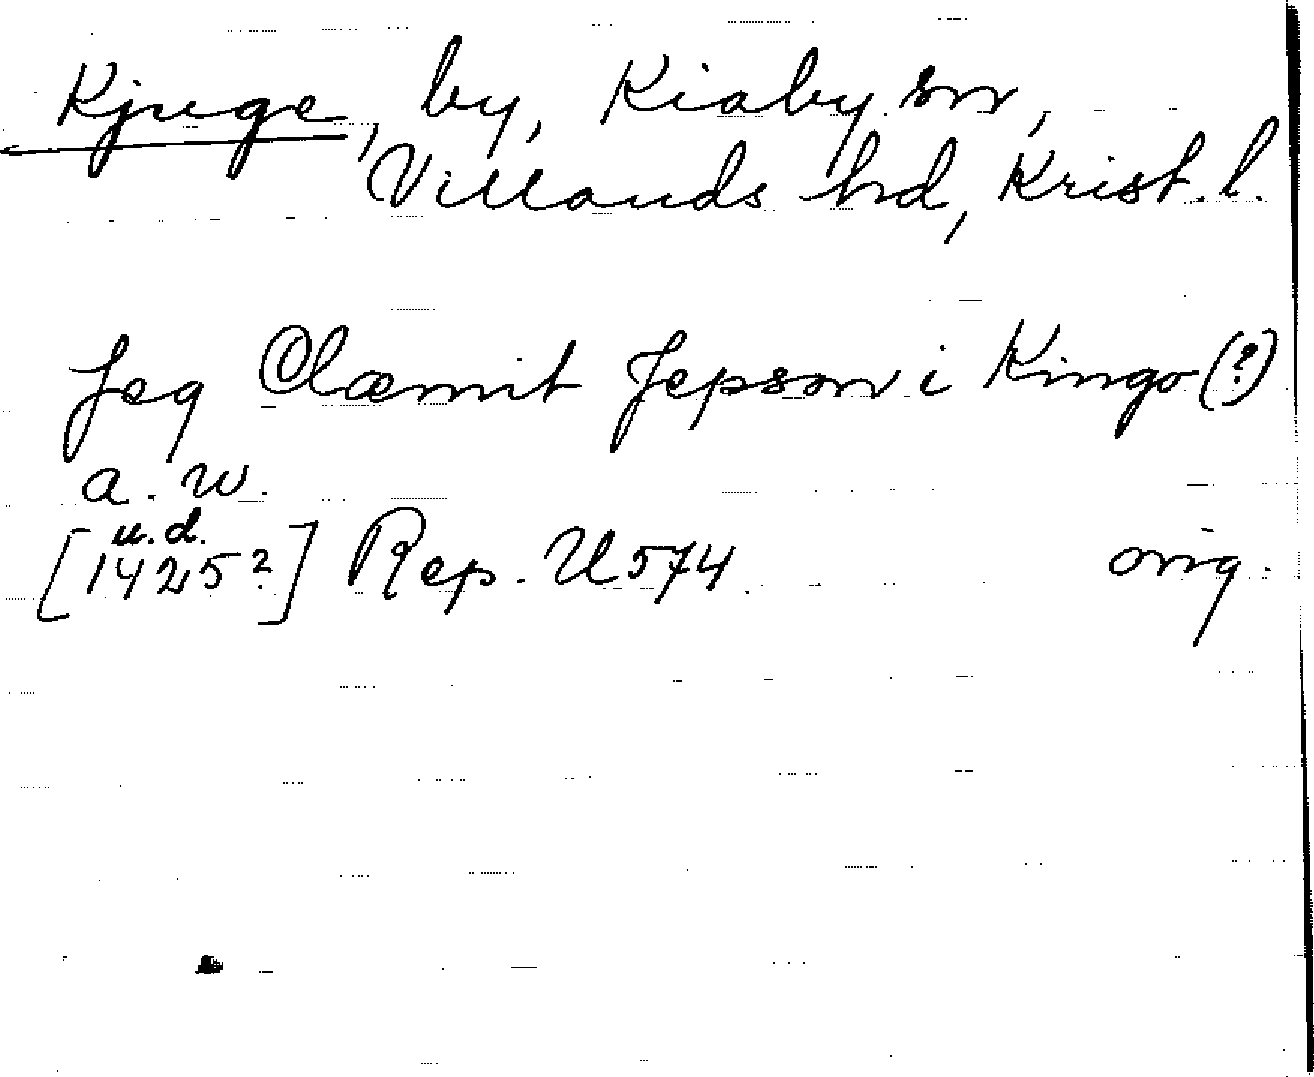 Kjuge, by, Kiaby sn,
Villands hd, Krist. l.
Jeg Clæmit Jepson i Kingo (?)
a. w.
u. d.
[1425?] Rep. U 574 orig.